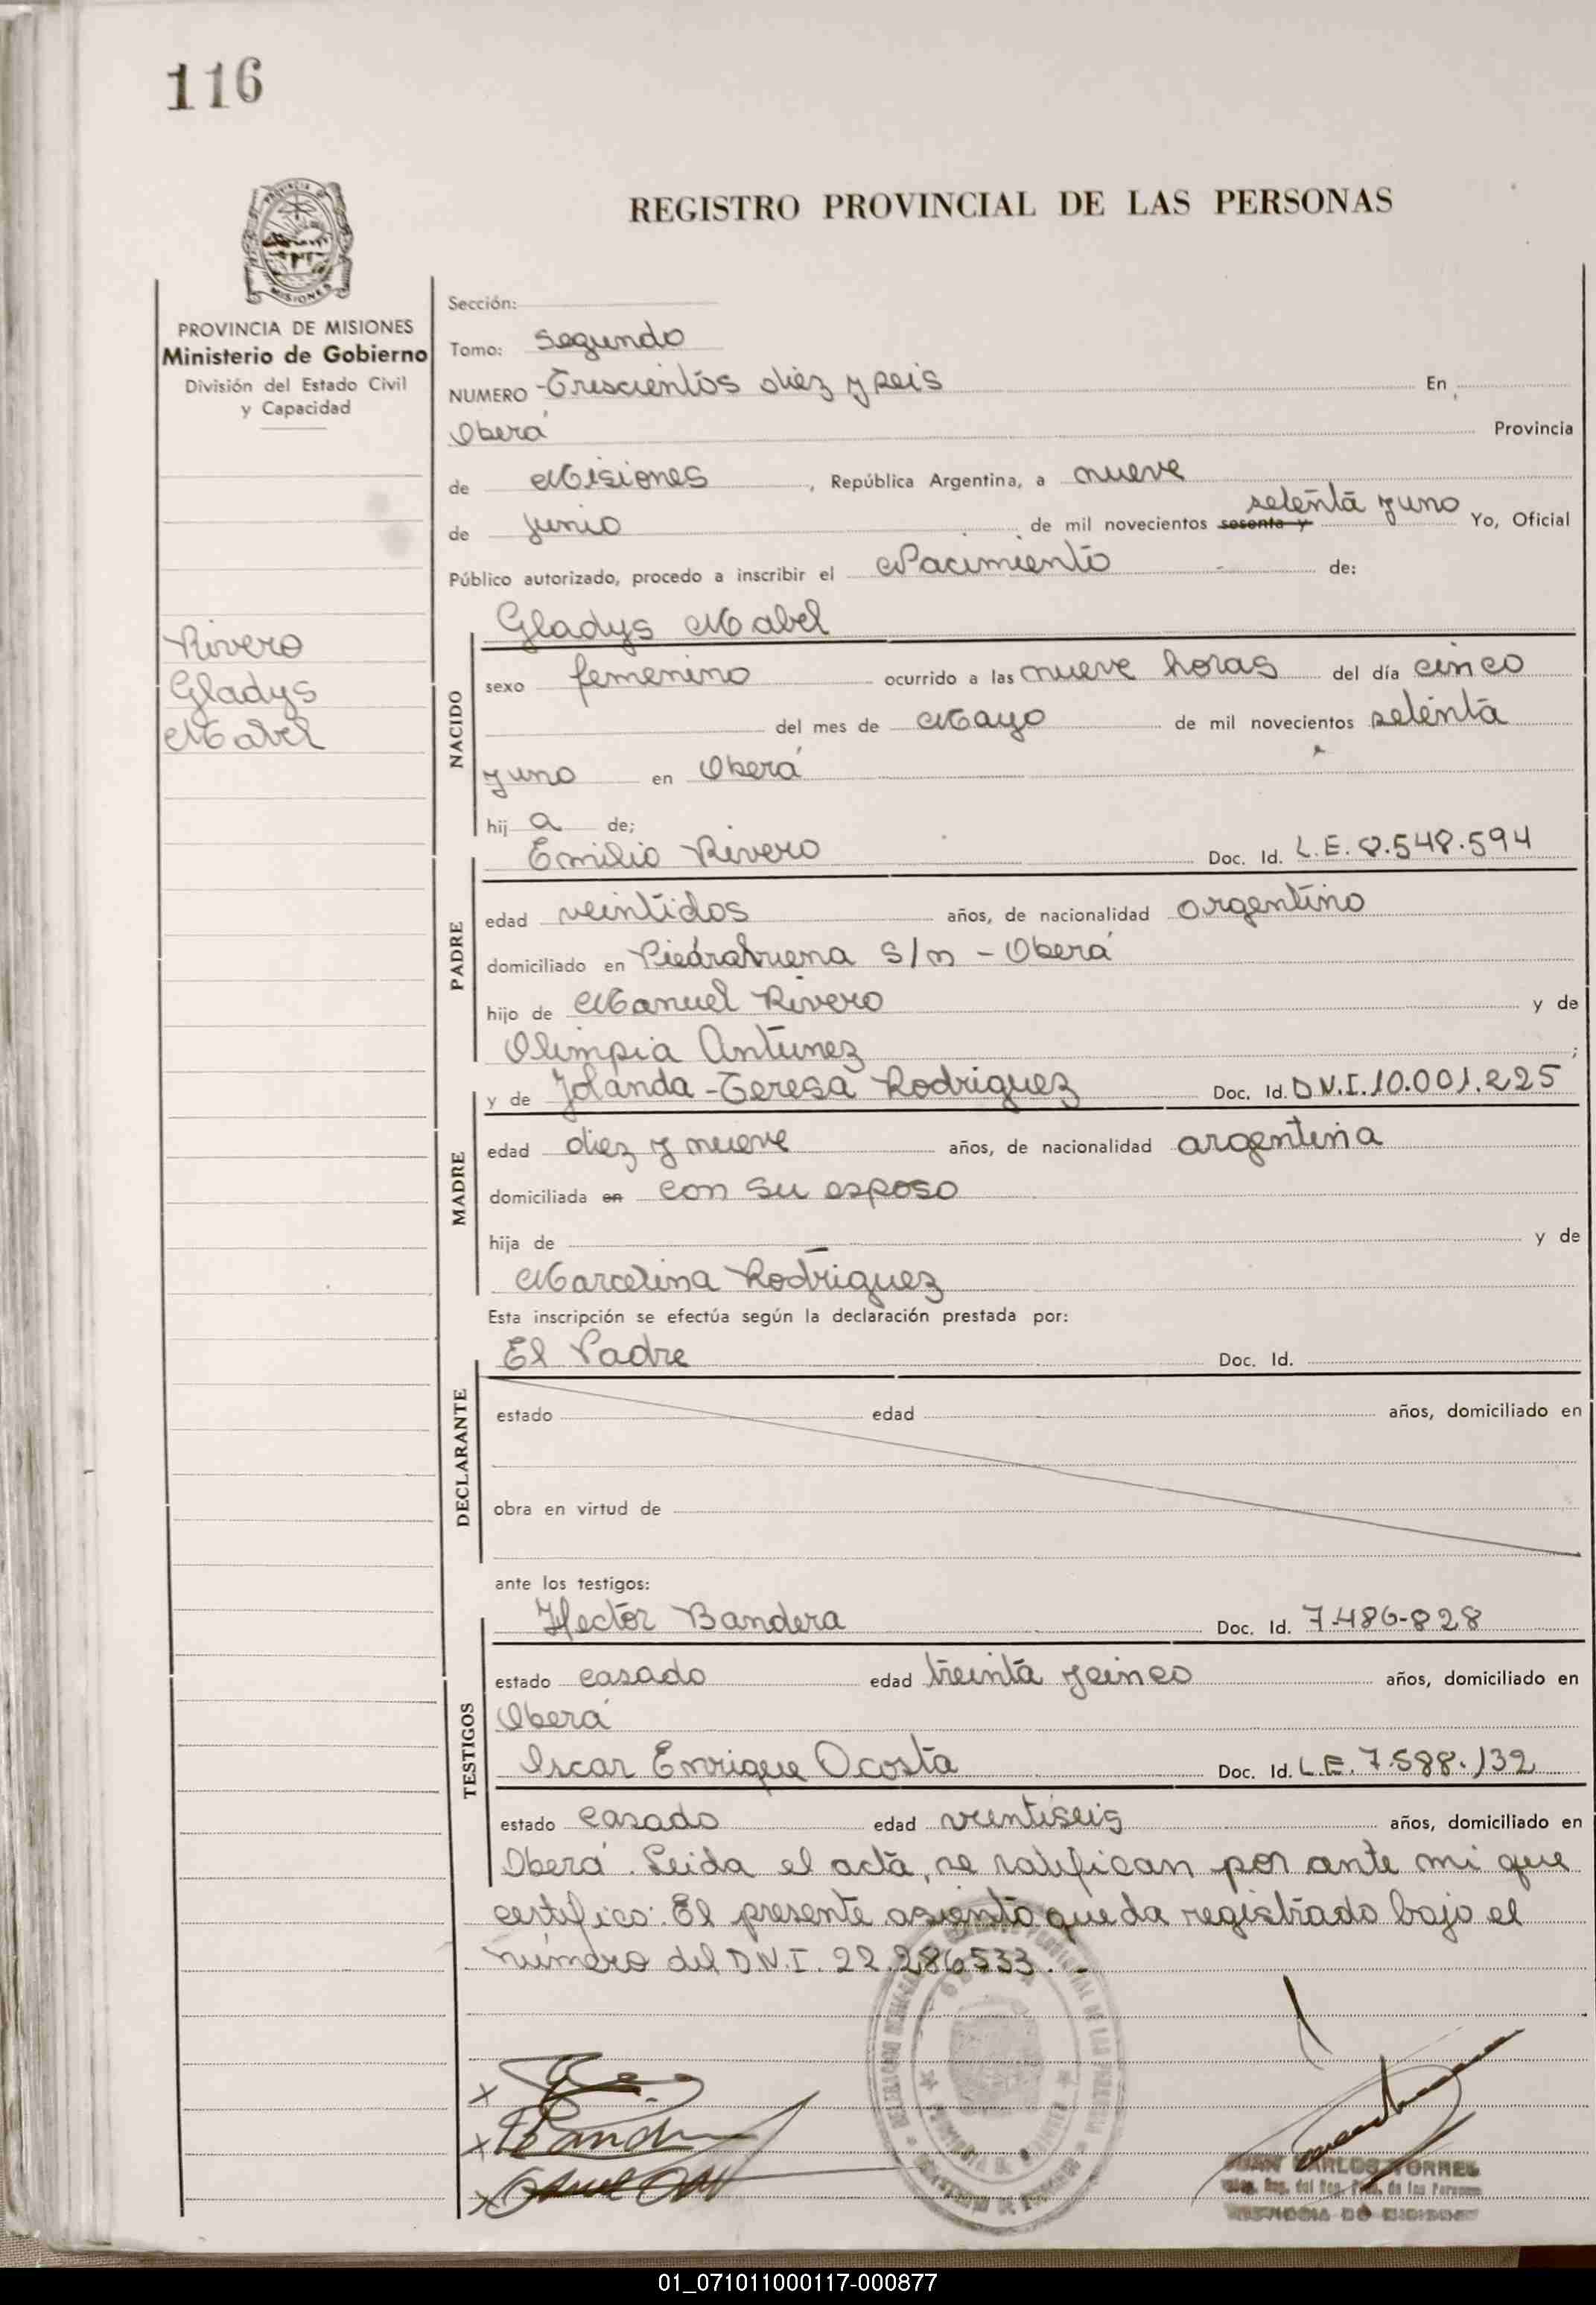 116
REGISTRO PROVINCIAL DE LAS PERSONAS
MISIONES
PROVINCIA DE MISIONES
Ministerio de Gobierno
División del Estado Civil
y Capacidad
Rivero
Gladys
Mabel
Sección:
Tomo: segundo
NUMERO -Trescientos diez y seis En
Oberá Provincia
de Misiones, República Argentina, a nueve
de junio de mil novecientos sesenta y setenta y uno Yo, Oficial
Público autorizado, procedo a inscribir el Nacimiento de:
NACIDO
Gladys Mabel
sexo femenino ocurrido a las nueve horas del día cinco
del mes de Mayo de mil novecientos setenta
y uno en Oberá
hij a de;
PADRE
Emilio Rivero Doc. Id. L.E. 8.548.594
edad veintidos años, de nacionalidad argentino
domiciliado en Piedrabuena s/n - Oberá
hijo de Manuel Rivero y de
Olimpia Antunez ;
MADRE
y de Jolanda - Teresa Rodriguez Doc. Id. D.N.I. 10.001.225
edad diez y nueve años, de nacionalidad argentina
domiciliada en con su esposo
hija de — y de
Marcelina Rodriguez
Esta inscripción se efectúa según la declaración prestada por:
DECLARANTE
El Padre Doc. Id.
estado edad años, domiciliado en
obra en virtud de
ante los testigos:
TESTIGOS
Hector Bandera Doc. Id. 7.486-828
estado casado edad treinta y cinco años, domiciliado en
Oberá
Oscar Enrique Acosta Doc. Id. L.E. 7.588.132
estado casado edad veintiseis años, domiciliado en
Oberá. Leida el acta, se ratifican por ante mi que
certifico. El presente asiento queda registrado bajo el
número del D.N.I. 22.286533.-
JUAN CARLOS TORRES
PROVINCIA DE MISIONES
01_071011000117-000877